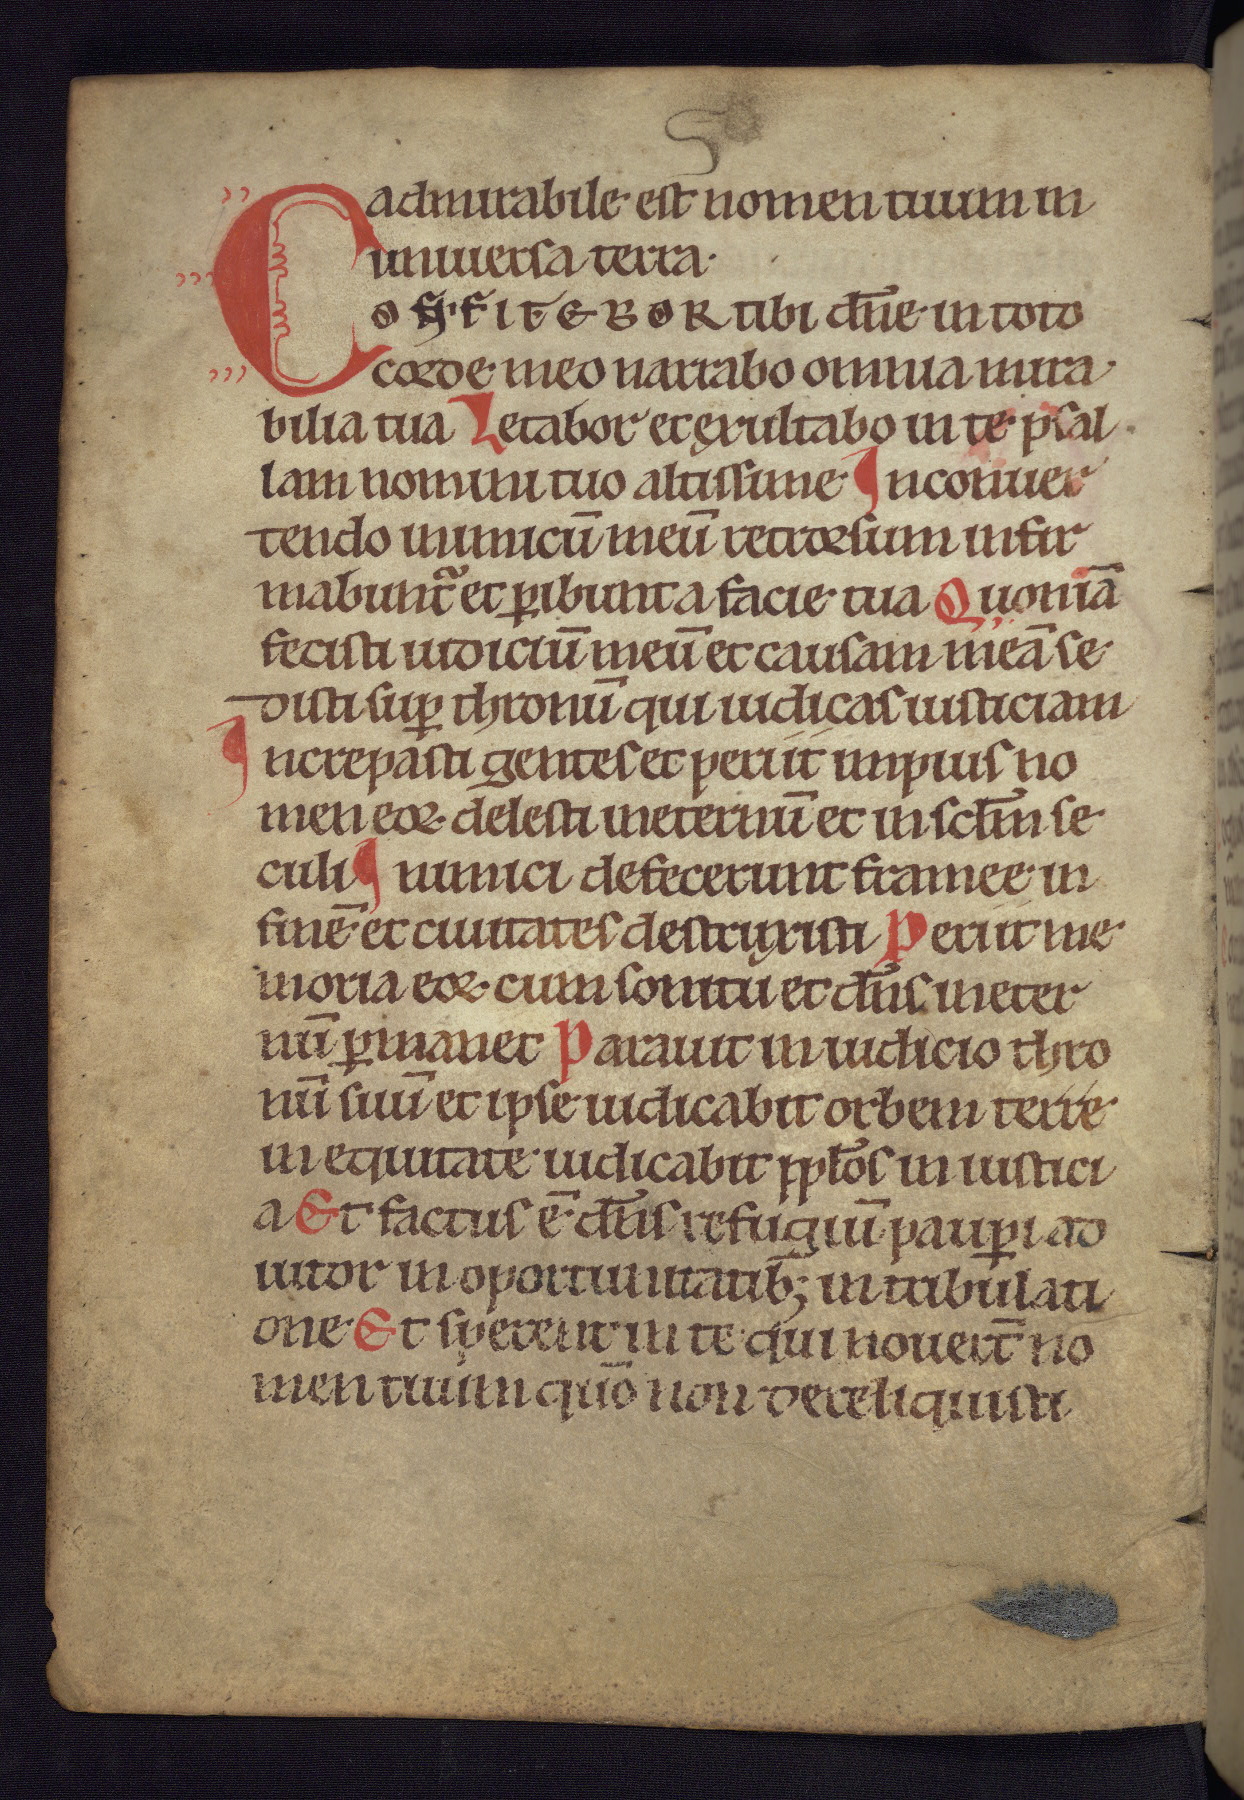 admirabile est nomen tuum in
universa terra.
CONFITEBOR tibi dn̄e in toto
corde meo narrabo omnia mira
bilia tua Letabor et exultabo in te psal
lam nomini tuo altissime In conuer
tendo inimicū meū retrorsum infir
mabunt᷑ et ꝑibunt a facie tua Quoniā
fecisti iudiciū meū et causam meā se
disti suꝑ thronū qui iudicas iusticiam
Increpasti gentes et periit impius no
men eoꝝ delesti in eternū et in sc̄lm se
culi Inimici defecerunt framee in
finē et ciuitates destruxisti Periit me
moria eoꝝ cum sonitu et dn̄s in eter
nū ꝑmanet Parauit in iudicio thro
nū suū et ipse iudicabit orbem terre
in equitate iudicabit pplōs in iustici
a Et factus ē dn̄s refugiū pauꝑi ad
iutor in oportunitatib; in tribulati
one Et sperent in te qui nouert̄ no
men tuum qūo non dereliquisti